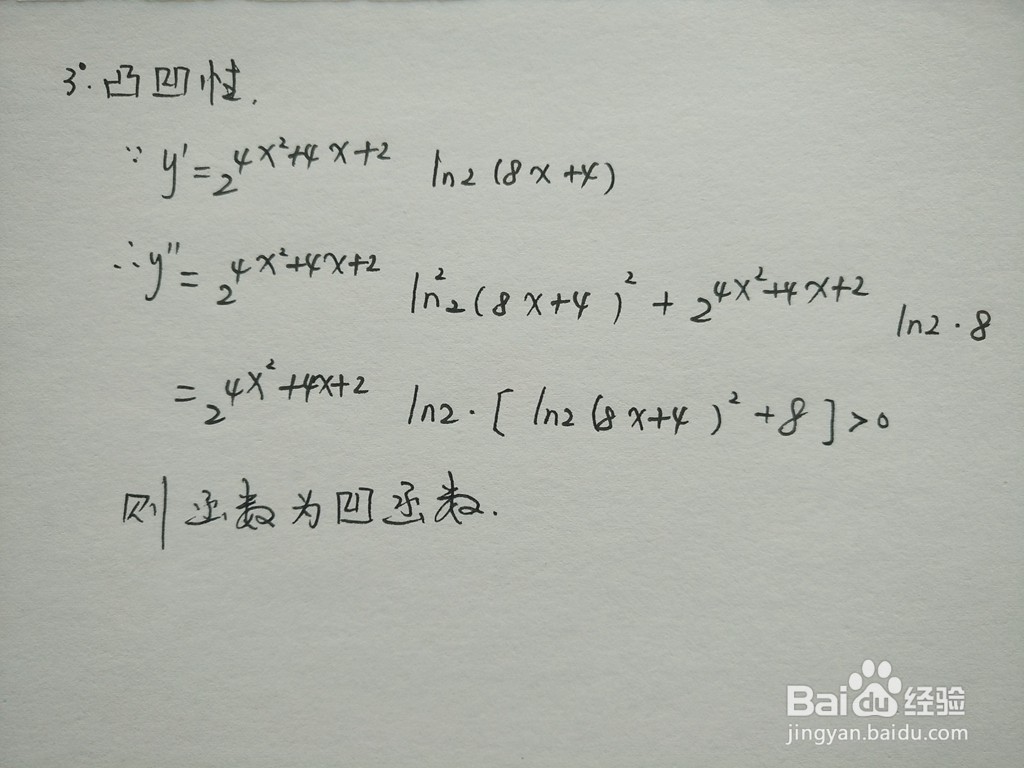 3°. 凸凹性.
∵ y' = 2^{4x²+4x+2} ln2 (8x+4)
∴ y'' = 2^{4x²+4x+2} ln²2 (8x+4)² + 2^{4x²+4x+2} ln2·8
= 2^{4x²+4x+2} ln2·[ ln2 (8x+4)² + 8 ] > 0
则函数为凹函数.
Baidu经验
jingyan.baidu.com